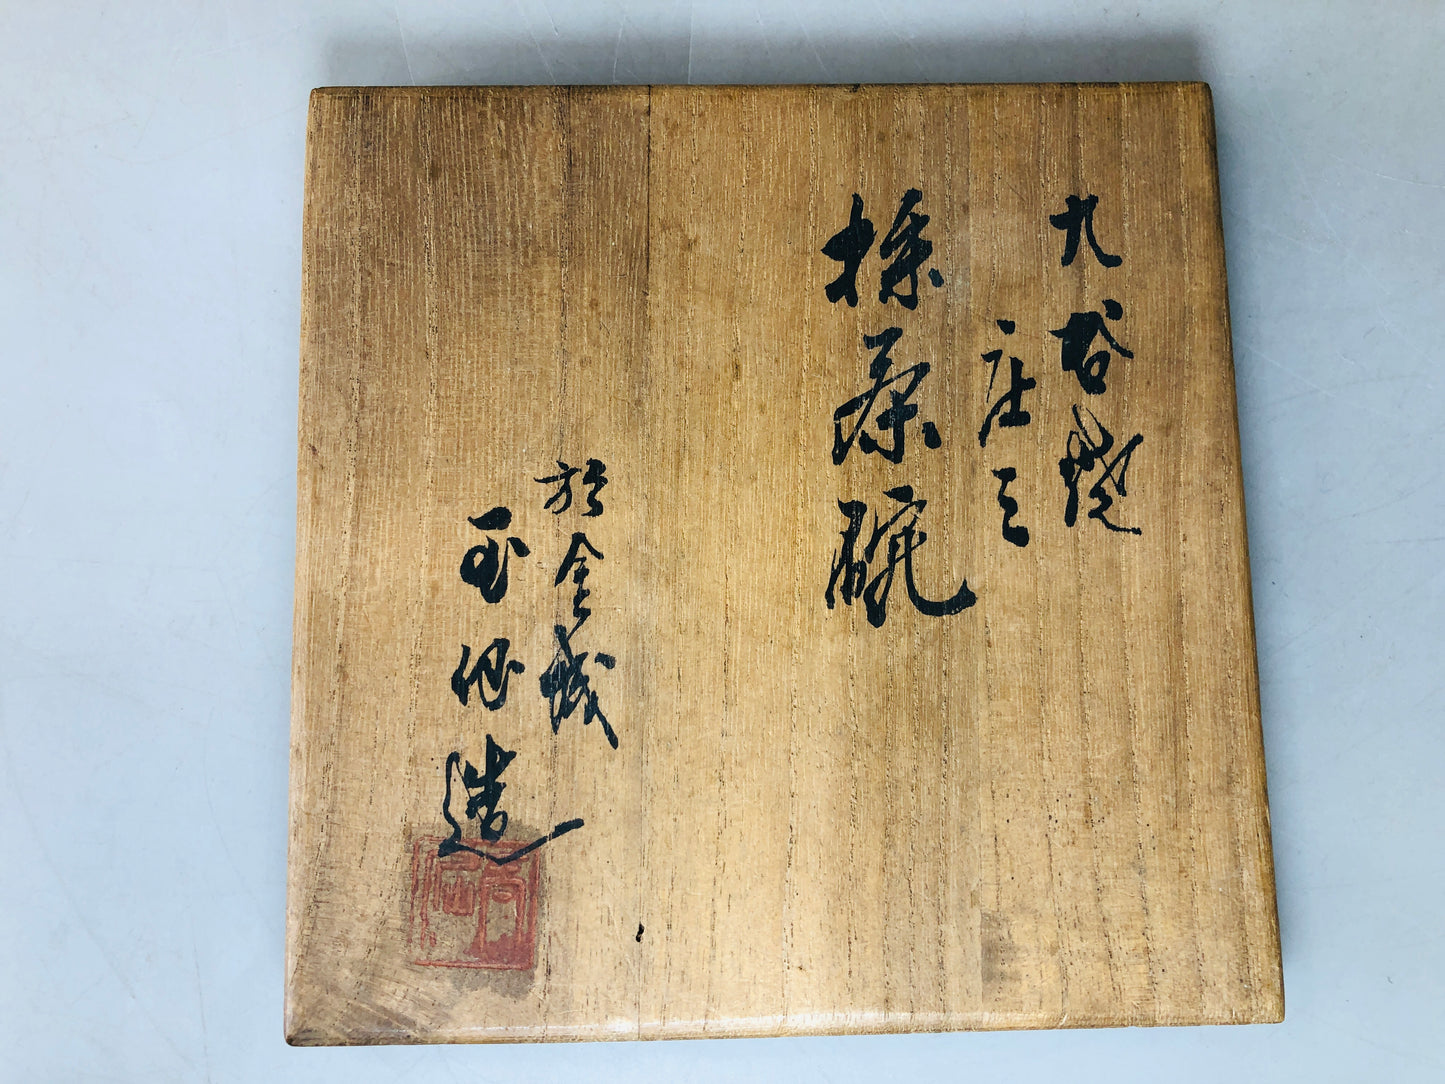 九谷焼
庄三
抹茶碗
於金城
造